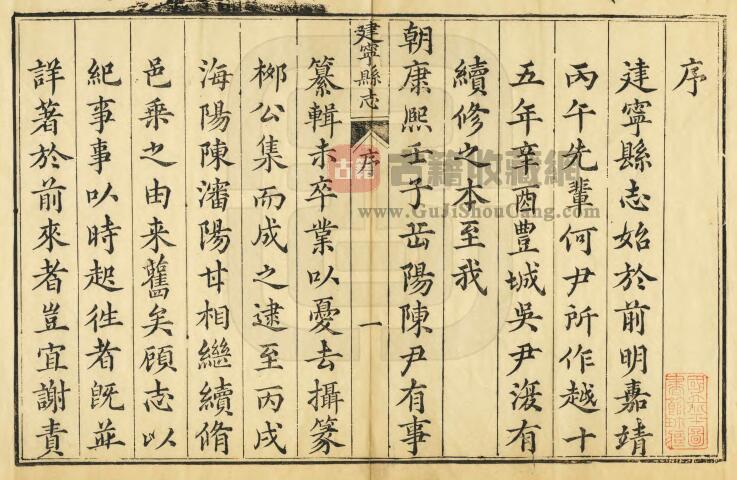 序
建寧縣志始於前明嘉靖
丙午先輩何尹所作越十
五年辛酉豊城吳尹湲有
續修之本至我
朝康熈壬子岳陽陳尹有事
建寧縣志
序
一
纂輯未卒業以憂去攝篆
栁公集而成之逮至丙戌
海陽陳瀋陽甘相繼續脩
邑乗之由来舊矣顧志以
紀事事以時起徃者既並
詳著於前來者豈宜謝責
古籍
古籍收藏網
www.GuJiShouCang.com